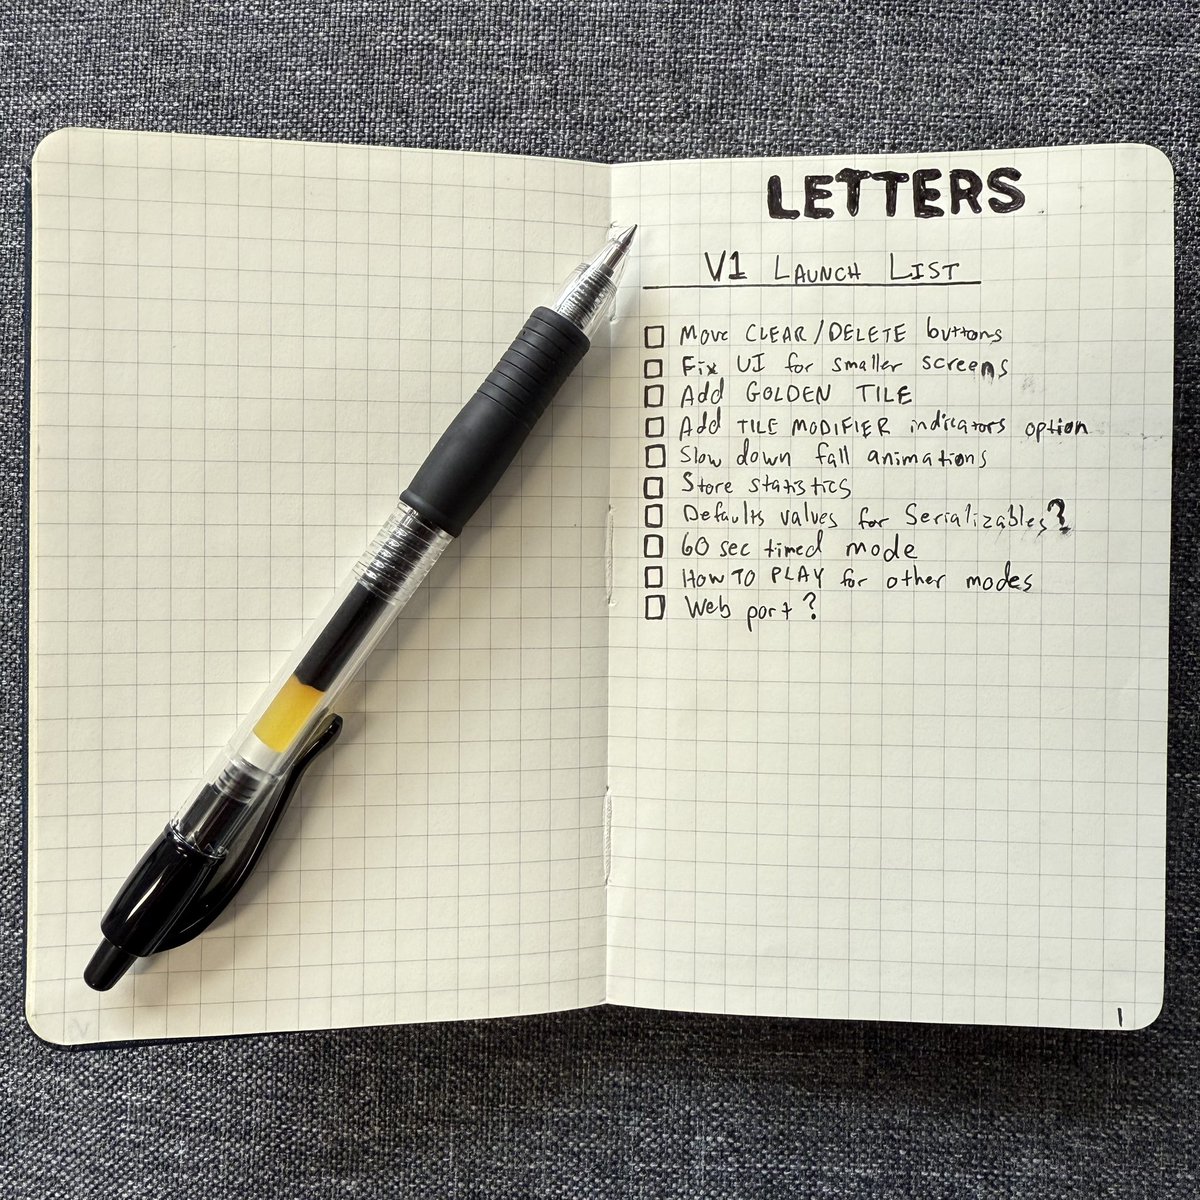 LETTERS
V1 LAUNCH LIST
Move CLEAR/DELETE buttons
Fix UI for smaller screens
Add GOLDEN TILE
Add TILE MODIFIER indicators option
Slow down fall animations
Store statistics
Defaults values for Serializables?
60 sec timed mode
HOW TO PLAY for other modes
Web port?
1